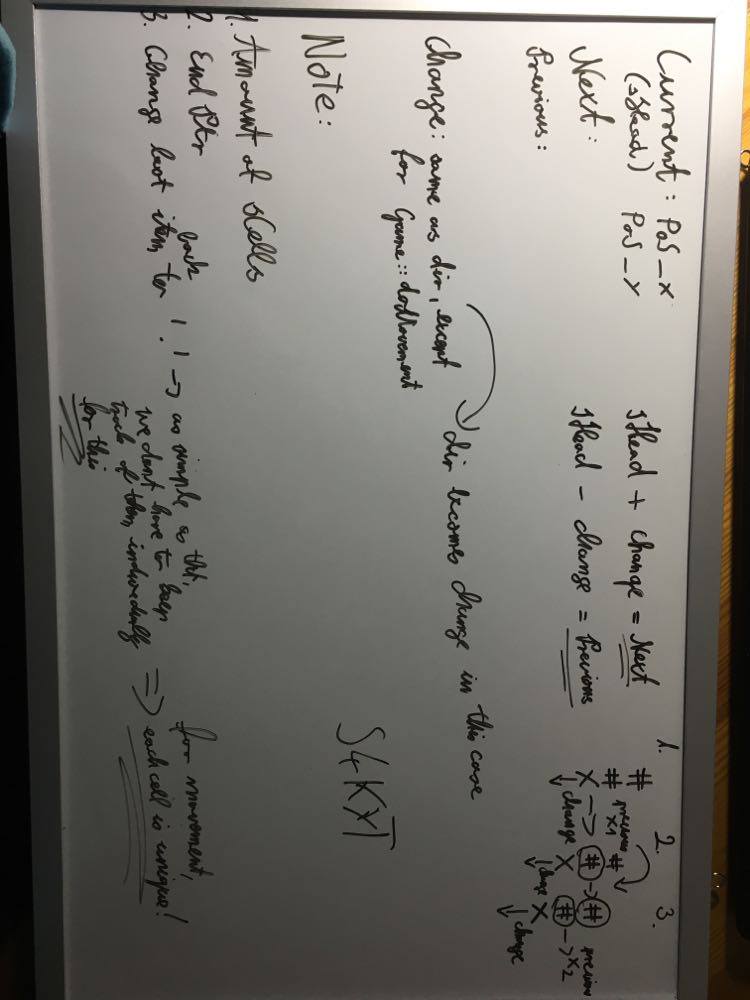 Current: PoS_X
(sHead) PoS_Y
Next:
Previous:
sHead + change = Next
sHead - change = Previous
1. 2. 3.
#
# previous x1 #
X -> # -> # previous
change X # -> x2
change X
change
Change: same as dir, except
for Game::doMovement
dir becomes change in this case
S4KXT
Note:
1. Amount of sCells
2. End Ptr
back
3. Change last item to '.' -> as simple as tht,
we dont have to keep
track of them individually
for this
=> for movement,
each cell is unique!